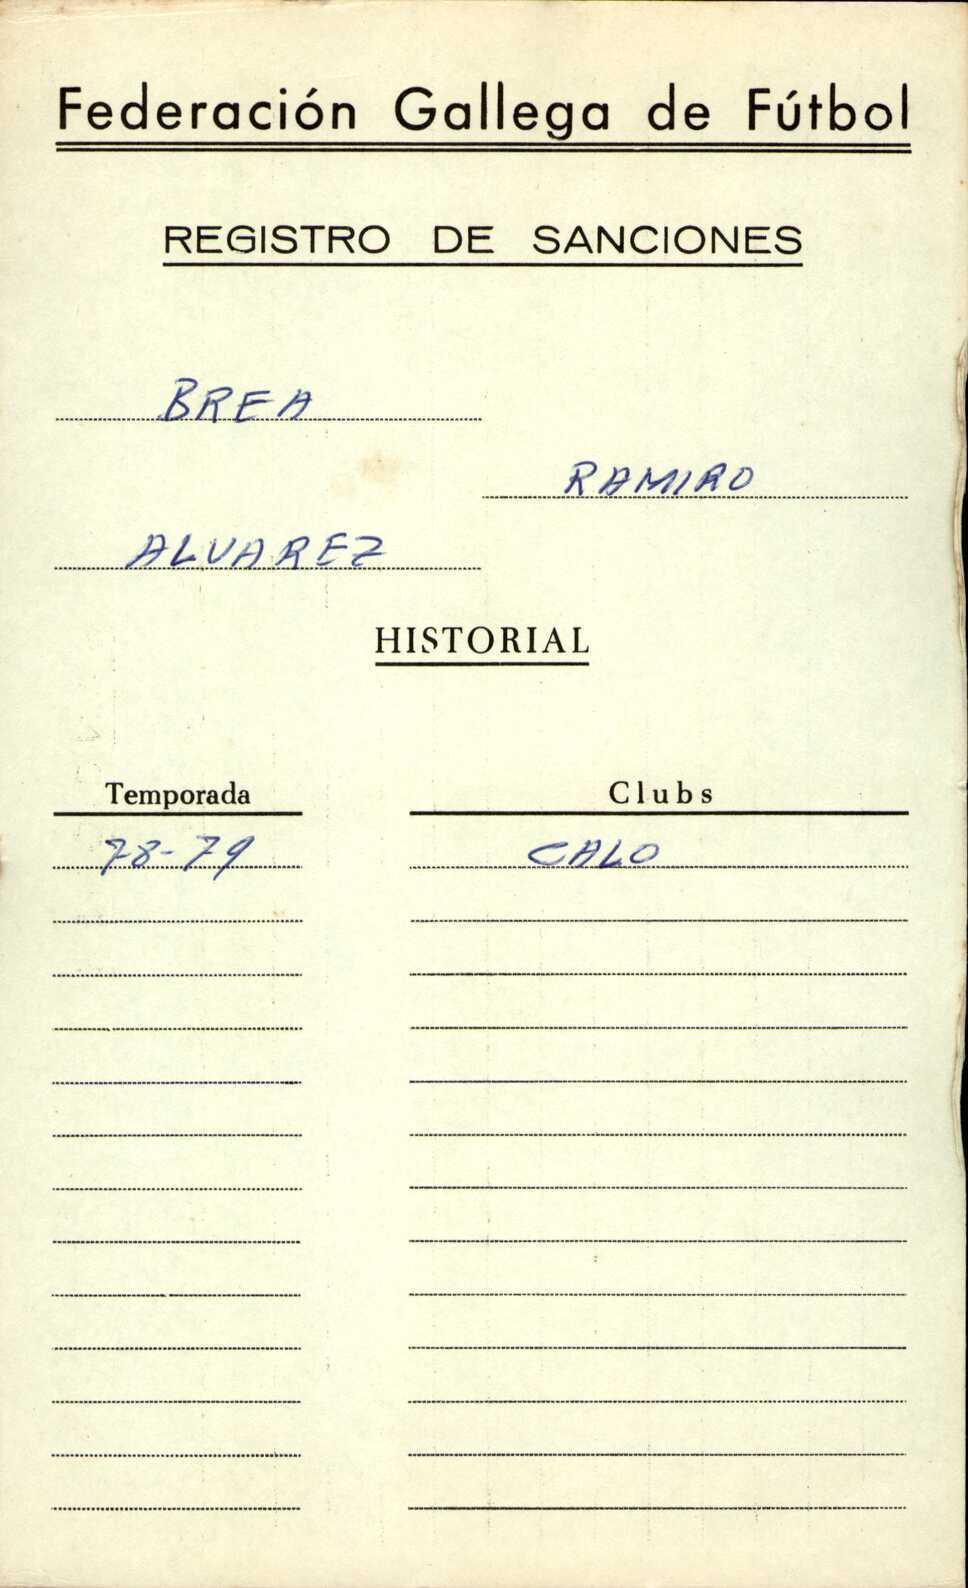 Federación Gallega de Fútbol
REGISTRO DE SANCIONES
BREA
RAMIRO
ALVAREZ
HISTORIAL
Temporada Clubs
78-79 CALO